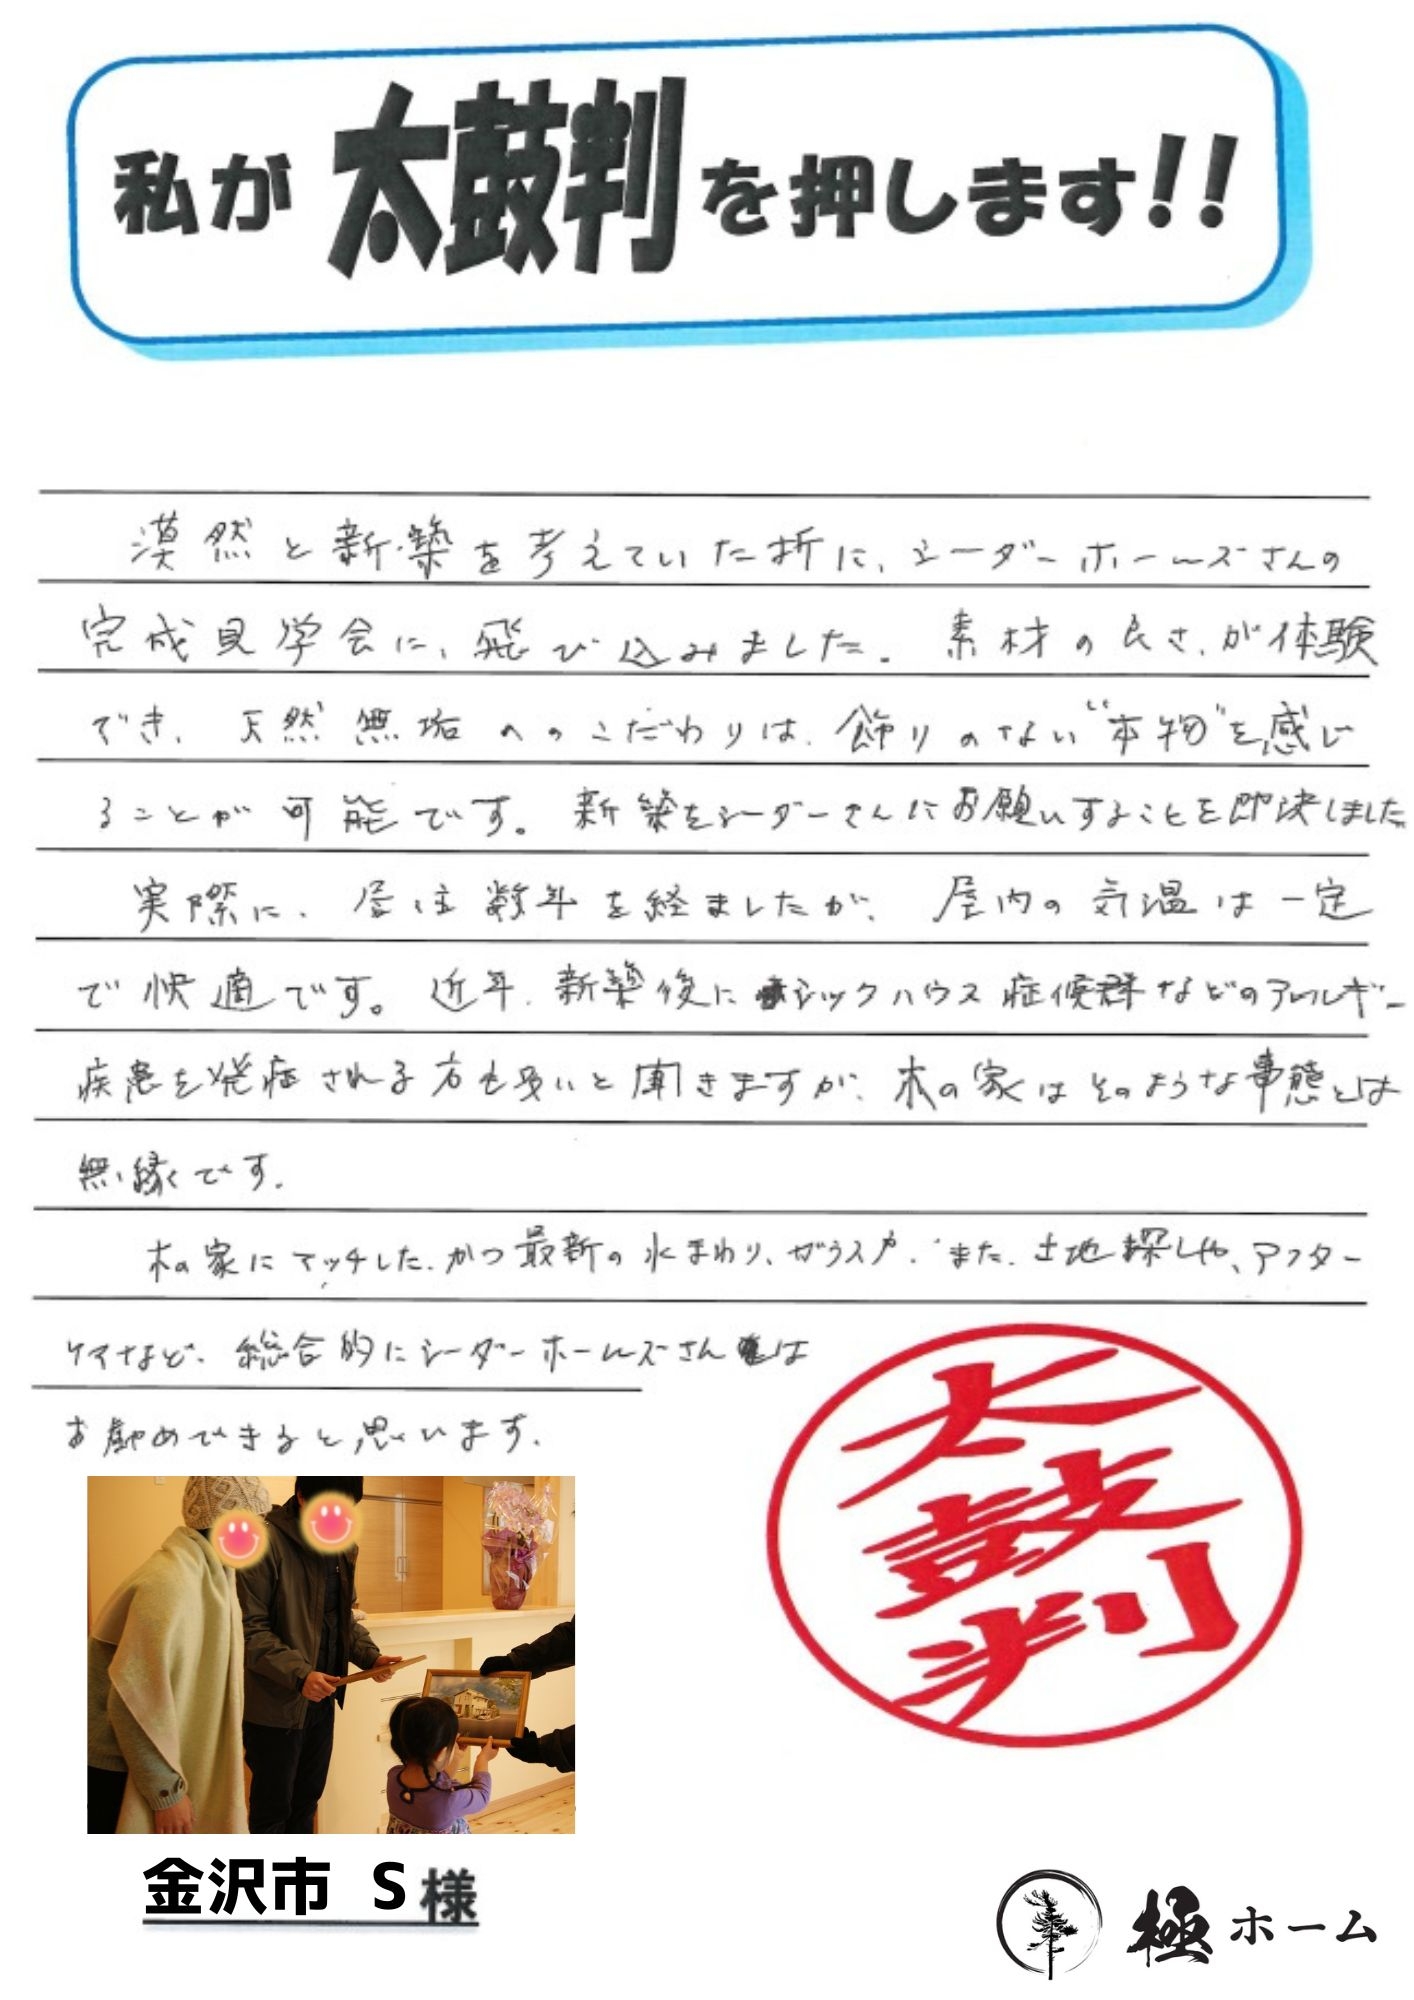 私が 太鼓判 を押します!!
漠然と新築を考えていた折に、シーダーホームズさんの
完成見学会に、飛び込みました。素材の良さ、が体験
でき、天然無垢へのこだわりは、飾りのない“本物”を感じ
ることが可能です。新築をシーダーさんにお願いすることを即決しました
実際に、居住数年を経ましたが、屋内の気温は一定
で快適です。近年、新築後にシックハウス症候群などのアレルギー
疾患を発症される方も多いと聞きますが、木の家はそのような事態とは
無縁です。
木の家にマッチした、かつ最新の水まわり、ガラス戸、また、土地探しや、アフター
ケアなど、総合的にシーダーホームズさんは
お勧めできると思います。
太鼓判
金沢市 S様
極ホーム